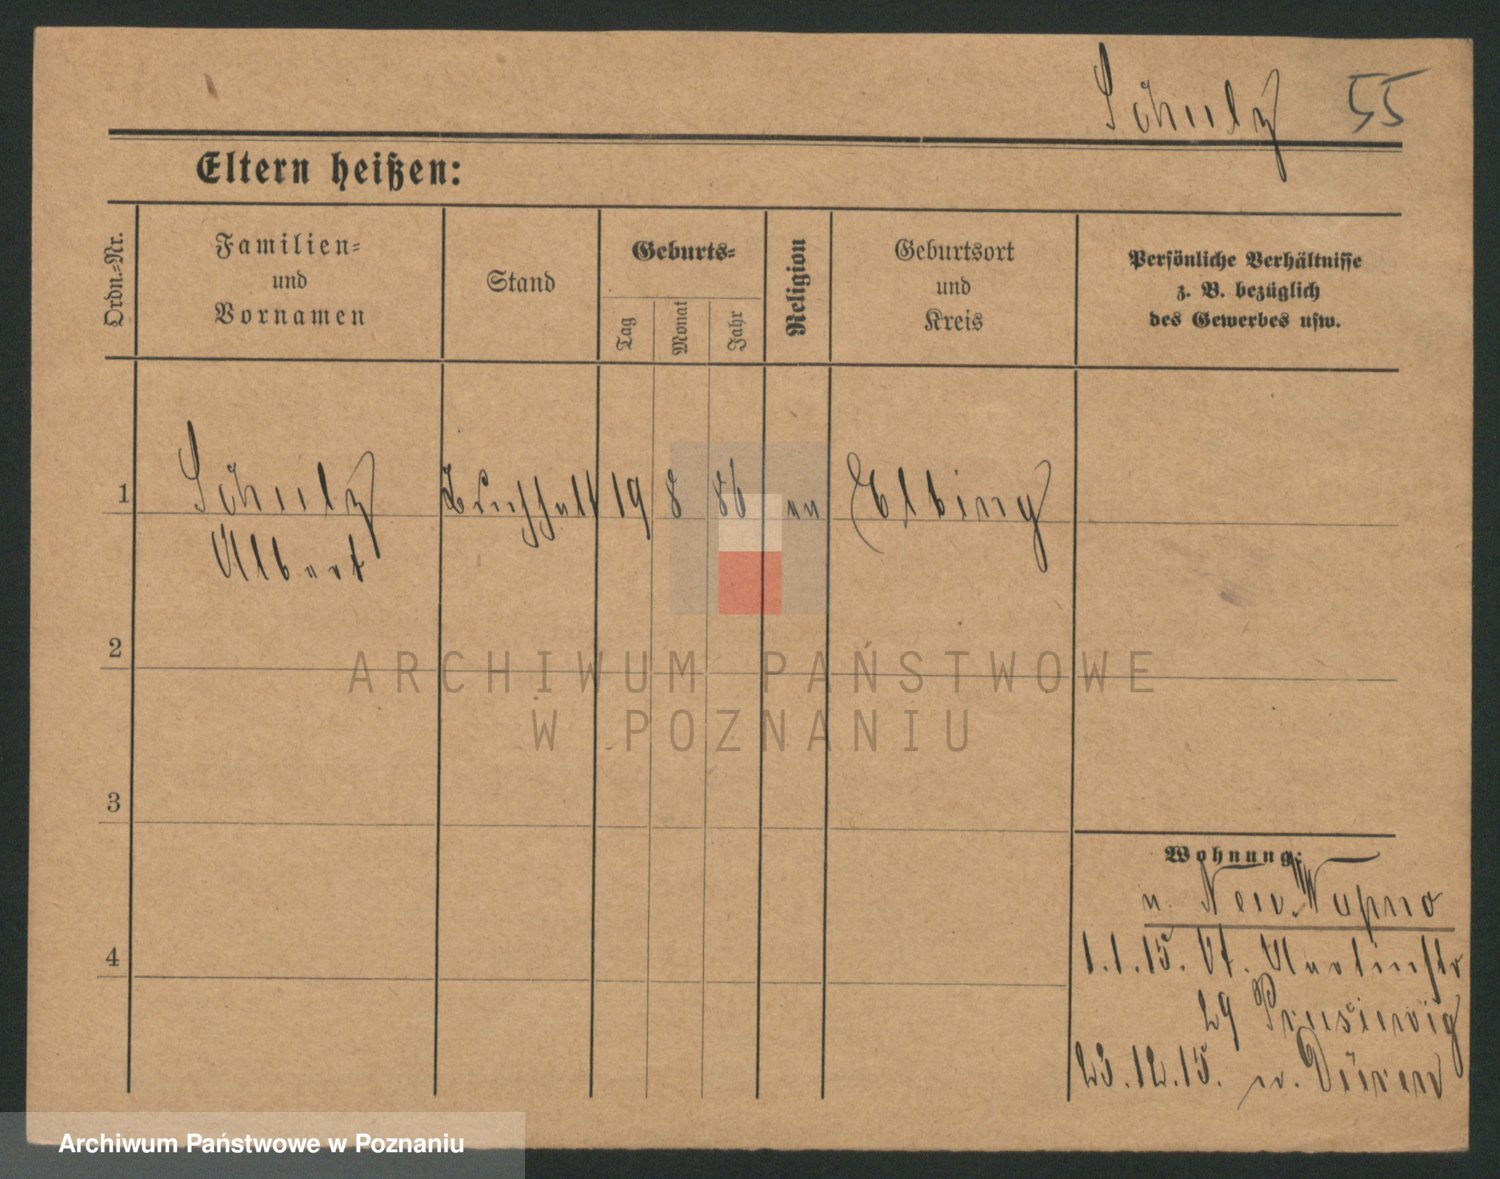 Schulz 55
Eltern heißen:
Ordn.-Nr.
Familien-
und
Vornamen
Stand
Geburts-
Tag
Monat
Jahr
Religion
Geburtsort
und
Kreis
Persönliche Verhältnisse
z. B. bezüglich
des Gewerbes usw.
1 Schulz 19 8 86 ev Elbing
Albert
2
ARCHIWUM PAŃSTWOWE
W POZNANIU
3
Wohnung:
n.
4
1.1.15. St. Martinstr
29
23.12.15. n. Düren
Archiwum Państwowe w Poznaniu